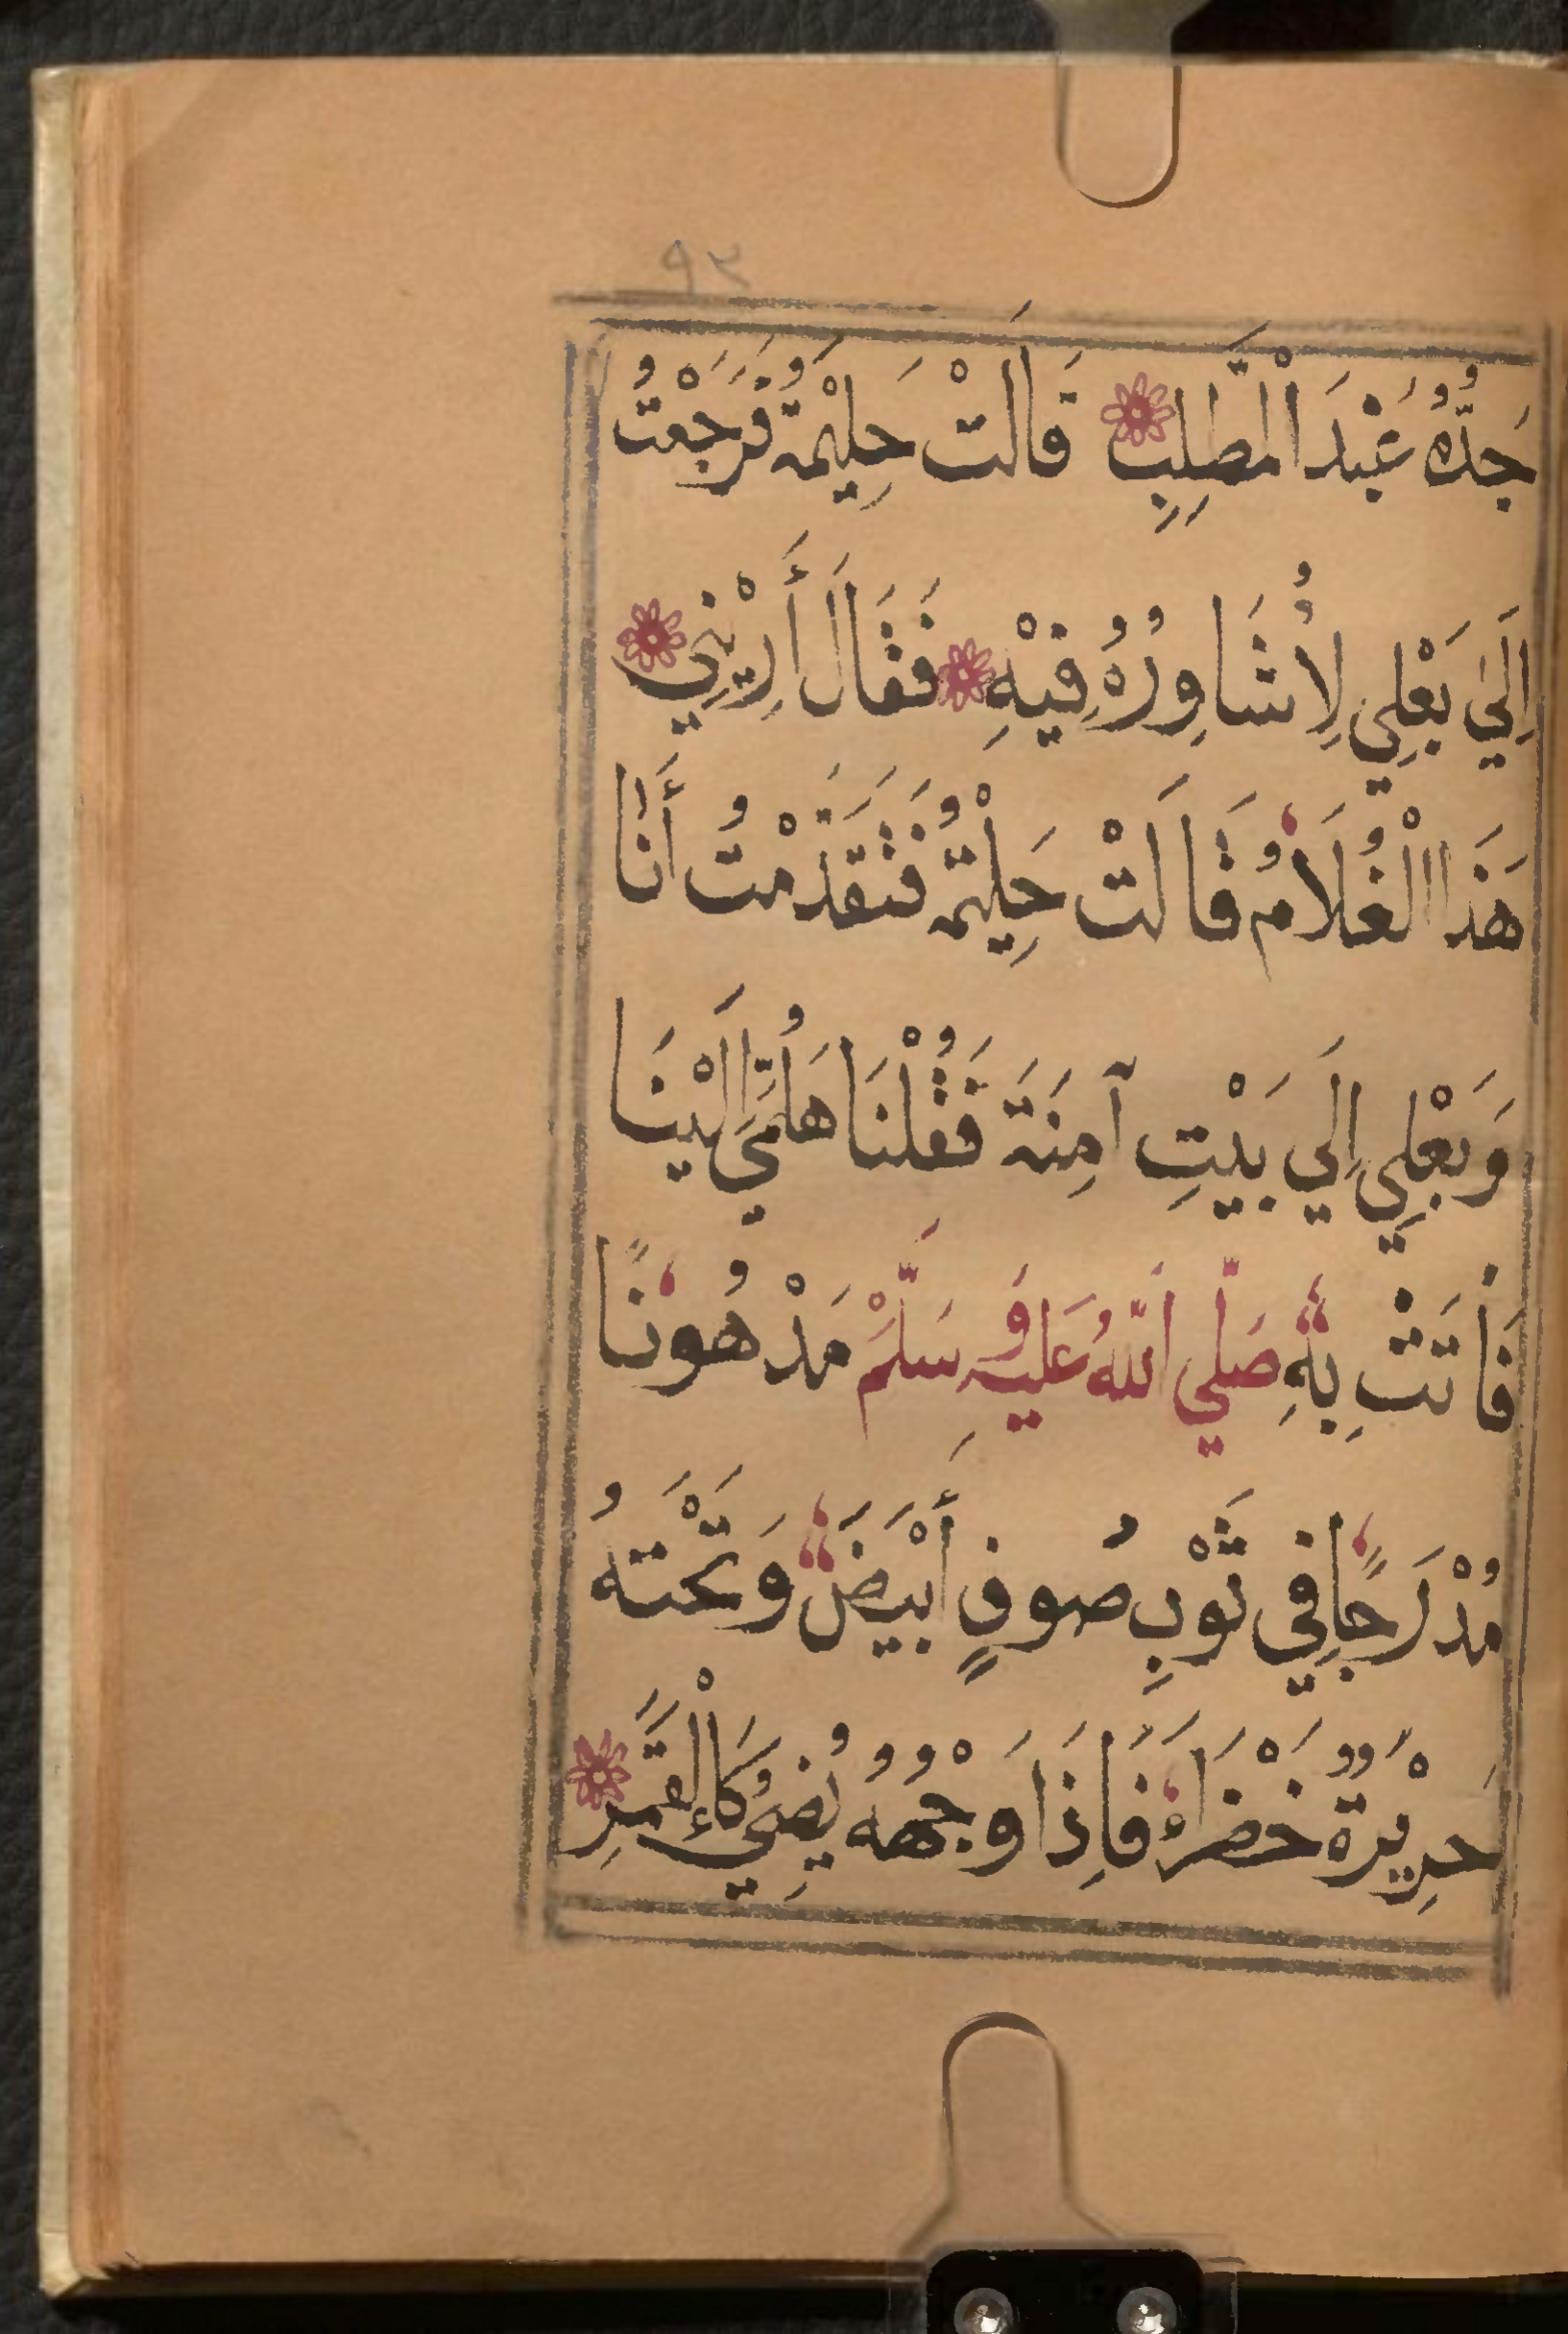 ٩٣
جَدُّهُ عَبْدَ الْمُطَّلِبِ قَالَتْ حَلِيْمَةُ فَرَجَعْتُ
اِلَيَ بَعْلِي لِأُشَاوِرُهُ فِيْهِ فَقَالَ أَرِيْنِي
هَذَا الْغُلَامُ قَالَتْ حَلِيْمَةُ فَتَقَدَّمْتُ أَنَا
وَبَعْلِي اِلَي بَيْتِ آمِنَةَ فَقُلْنَا هَلُمِّيَ اِلَيْنَا
فَأَتَتْ بِهِ صَلَّي اللَّهُ عَلَيْهِ وَسَلَّمَ مَدْهُونًا
مُدْرَجًا فِي ثَوْبِ صُوفٍ أَبْيَضَ وَتَحْتَهُ
حَرِيْرَةٌ خَضْرَاءْ فَاِذَا وَجْهُهُ يُضِئُ كَالْقَمَرِ